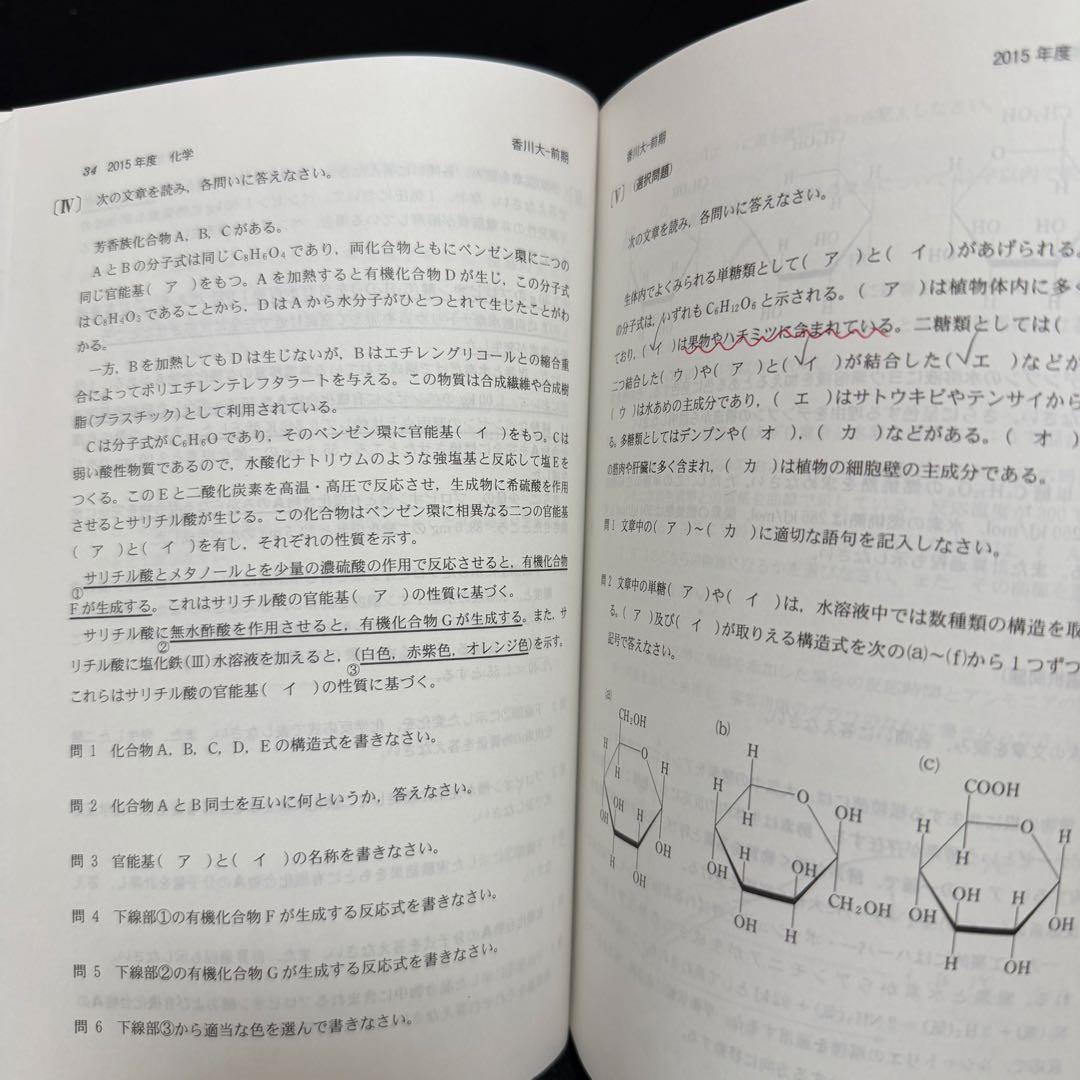 34 2015年度 化学
香川大-前期
〔Ⅳ〕 次の文章を読み,各問いに答えなさい。
芳香族化合物A,B,Cがある。
AとBの分子式は同じC₈H₆O₄であり,両化合物ともにベンゼン環に二つの
同じ官能基( ア )をもつ。Aを加熱すると有機化合物Dが生じ,この分子式
はC₈H₄O₃であることから,DはAから水分子がひとつとれて生じたことがわ
かる。
一方,Bを加熱してもDは生じないが,Bはエチレングリコールとの縮合重
合によってポリエチレンテレフタラートを与える。この物質は合成繊維や合成樹
脂(プラスチック)として利用されている。
Cは分子式がC₆H₆Oであり,そのベンゼン環に官能基( イ )をもつ。Cは
弱い酸性物質であるので,水酸化ナトリウムのような強塩基と反応して塩Eを
つくる。このEと二酸化炭素を高温・高圧で反応させ,生成物に希硫酸を作用
させるとサリチル酸が生じる。この化合物はベンゼン環に相異なる二つの官能基
( ア )と( イ )を有し,それぞれの性質を示す。
サリチル酸とメタノールとを少量の濃硫酸の作用で反応させると,有機化合物
①
Fが生成する。これはサリチル酸の官能基( ア )の性質に基づく。
サリチル酸に無水酢酸を作用させると,有機化合物Gが生成する。また,サ
②
リチル酸に塩化鉄(Ⅲ)水溶液を加えると,(白色,赤紫色,オレンジ色)を示す。
③
これらはサリチル酸の官能基( イ )の性質に基づく。
問1 化合物A,B,C,D,Eの構造式を書きなさい。
問2 化合物AとB同士を互いに何というか,答えなさい。
問3 官能基( ア )と( イ )の名称を書きなさい。
問4 下線部①の有機化合物Fが生成する反応式を書きなさい。
問5 下線部②の有機化合物Gが生成する反応式を書きなさい。
問6 下線部③から適当な色を選んで書きなさい。
2015年度
香川大-前期
〔Ⅴ〕 (選択問題)
次の文章を読み,各問いに答えなさい。
生体内でよくみられる単糖類として( ア )と( イ )があげられる。
の分子式は,いずれもC₆H₁₂O₆と示される。( ア )は植物体内に多く
ており,( イ )は果物やハチミツに含まれている。二糖類としては(
二つ結合した( ウ )や( ア )と( イ )が結合した( エ )などが
( ウ )は水あめの主成分であり,( エ )はサトウキビやテンサイから
る。多糖類としてはデンプンや( オ ),( カ )などがある。( オ )
の筋肉や肝臓に多く含まれ,( カ )は植物の細胞壁の主成分である。
問1 文章中の( ア )~( カ )に適切な語句を記入しなさい。
問2 文章中の単糖( ア )や( イ )は,水溶液中では数種類の構造を取
る。( ア )及び( イ )が取りえる構造式を次の(a)~(f)から1つずつ
記号で答えなさい。
(a)
CH₂OH
H
O
H
H
OH
H
OH
OH
H
OH
(b)
H
H
O
H
OH
H
H
OH
CH₂OH
OH
H
(c)
COOH
H
O
H
H
OH
H
OH
OH
H
OH